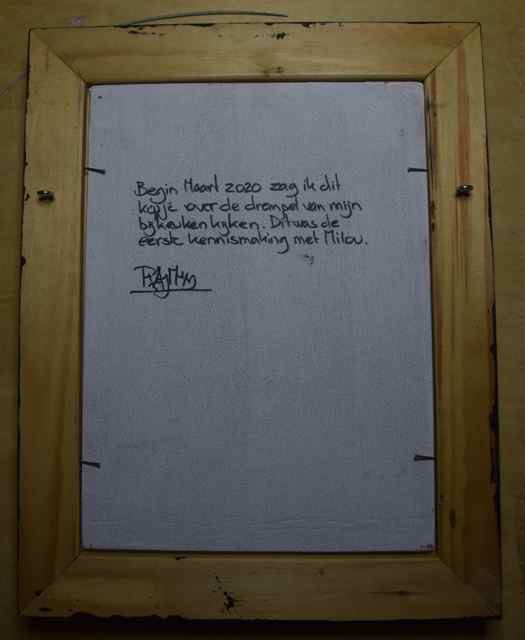 Begin Maart 2020 zag ik dit
kopje over de drempel van mijn
bijkeuken kijken. Dit was de
eerste kennismaking met Milou.